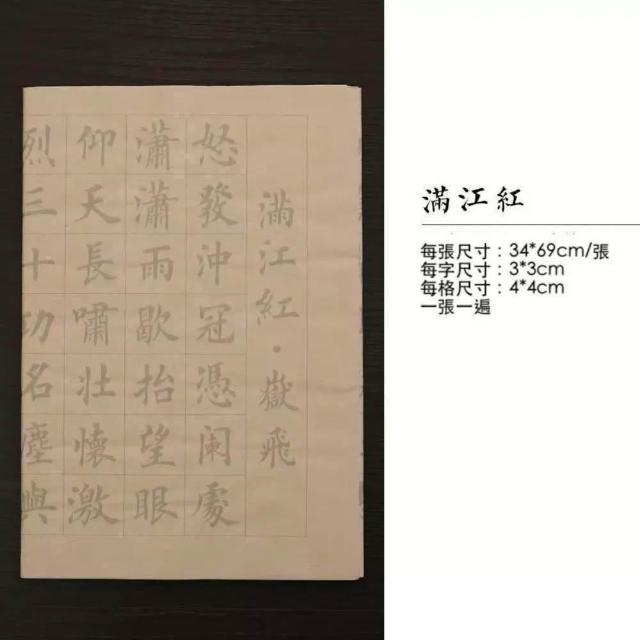 滿江紅·嶽飛
怒發沖冠憑闌處
瀟瀟雨歇抬望眼
仰天長嘯壯懷激
烈三十功名塵與
滿江紅
每張尺寸：34*69cm/張
每字尺寸：3*3cm
每格尺寸：4*4cm
一張一遍